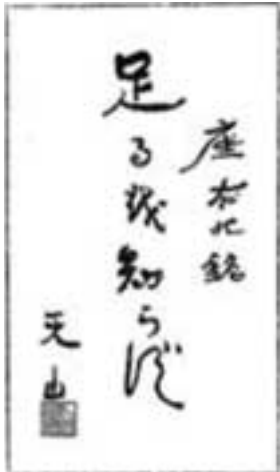 座右之銘
足る越知らず
天山